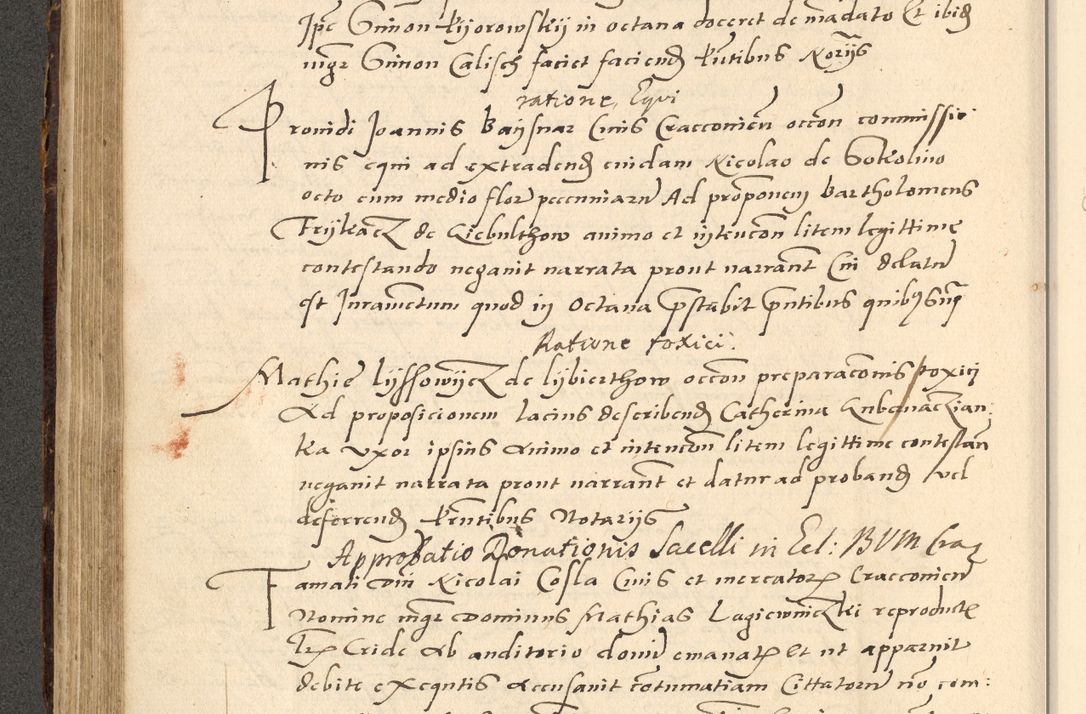 Ipse Simon Kijorowskij in octava doceret de mãdato Et ibid
mgr Simon Calisch faciet faciend pñtibus Norijs
ratione Equi
Providi Joannis Baysnar Civis Cracconien occõn commissio
nis equi ad extradend cuidam Nicolao de Sokolino
octo cum medio flor pecuniarũ Ad propõnem Bartholomeus
Trijkacz de Giebulthow animo et intencõn litem legittime
contestando negavit narrata prout narrant Cui delatũ
est Juramentum quod in Octava pstabit pñtibus quibus
Ratione toxici.
Mathie lyssowijcz de lybierthow occõn preparacõnis toxici
Ad proposicionem lacius describend Catherina
ka uxor ipsius Animo et intencõn litem legittime contestan
negavit narrata prout narrant et datur ad proband vel
deferrend pñtibus Notarijs
Approbatio Donationis Sacelli in Ecl: BVM Crac
Famati Dni Nicolai Cosla Civis et mercator Cracconien
Nomine mgr Dominus Mathias Lagiewniczki reproducte
Cride Ab auditorio domi emanat Et ut apparuit
debite exequtis Accusavit cõtumatiam Cittatorũ nõ com: